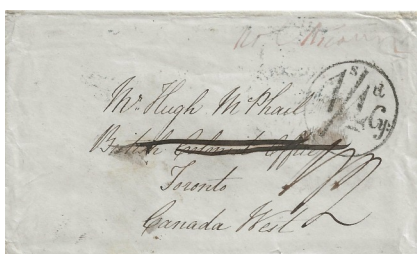 Not Known
s d
1/1½ Cy
Mr Hugh McPhail
British Colonist Office
Toronto
Canada West